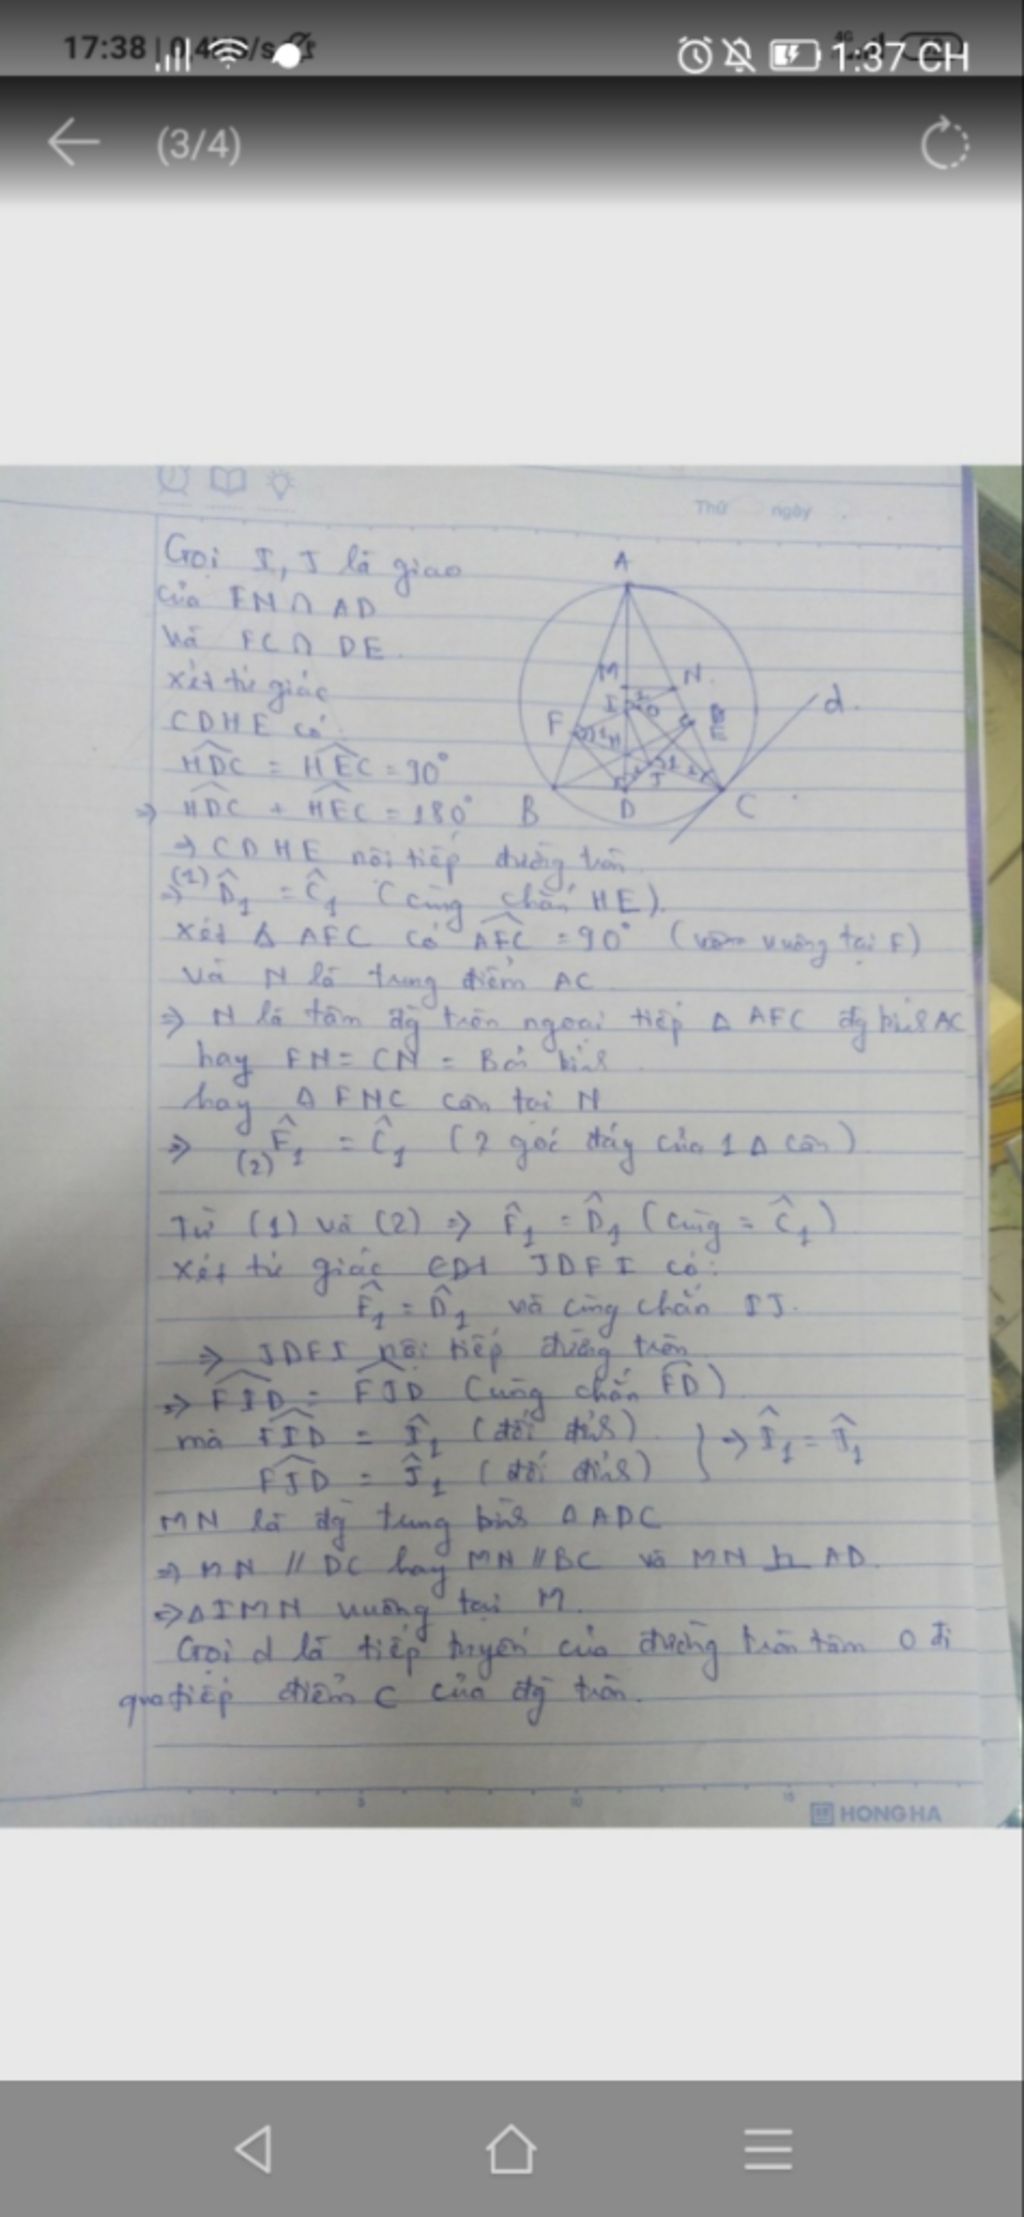 17:38
1:37 CH
(3/4)
Thứ ngày
Gọi I, J là giao
của FN ∩ AD
và FC ∩ DE.
xét tứ giác
CDHE có:
HDC = HEC = 90°
⇒ HDC + HEC = 180°
⇒ CDHE nội tiếp đường tròn
(1) ⇒ D̂₁ = Ĉ₁ (cùng chắn HE).
xét Δ AFC có AFC = 90° (vuông tại F)
và N là trung điểm AC
⇒ N là tâm đg tròn ngoại tiếp Δ AFC đg kính AC
hay FN = CN = Bán kính
hay Δ FNC cân tại N
⇒ (2) F̂₁ = Ĉ₁ (2 góc đáy của 1 Δ cân)
Từ (1) và (2) ⇒ F̂₁ = D̂₁ (cùng = Ĉ₁)
xét tứ giác JDFI có:
F̂₁ = D̂₁ và cùng chắn IJ.
⇒ JDFI nội tiếp đường tròn
⇒ FID = FJD (cùng chắn FD)
mà FID = Î₁ (đối đỉnh)
FJD = Ĵ₁ (đối đỉnh) } ⇒ Î₁ = Ĵ₁
MN là đg trung bình Δ ADC
⇒ MN // DC hay MN // BC và MN ⊥ AD.
⇒ Δ IMN vuông tại M.
Gọi d là tiếp tuyến của đường tròn tâm O đi
qua tiếp điểm C của đg tròn.
A
M N
I O d
F H
J
B D C
5 10 15
HONG HA